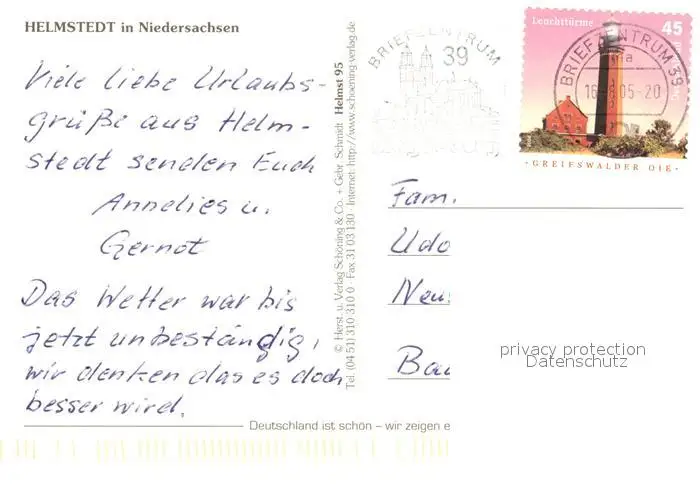 HELMSTEDT in Niedersachsen
Viele liebe Urlaubs-
grüße aus Helm-
stedt senden Euch
Annelies u.
Gernot
Das Wetter war bis
jetzt unbeständig,
wir denken das es doch
besser wird.
© Herst. u. Verlag Schöning & Co. + Gebr. Schmidt Helmst 95
Tel. (04 51) 310 310 0 · Fax 31 03 130 · Internet: http://www.schoening-verlag.de
BRIEFZENTRUM
39
Leuchttürme
45
BRIEFZENTRUM 39
05-20
·GREIFSWALDER OIE·
Fam.
Udo
Neu
Bau
privacy protection
Datenschutz
Deutschland ist schön – wir zeigen e